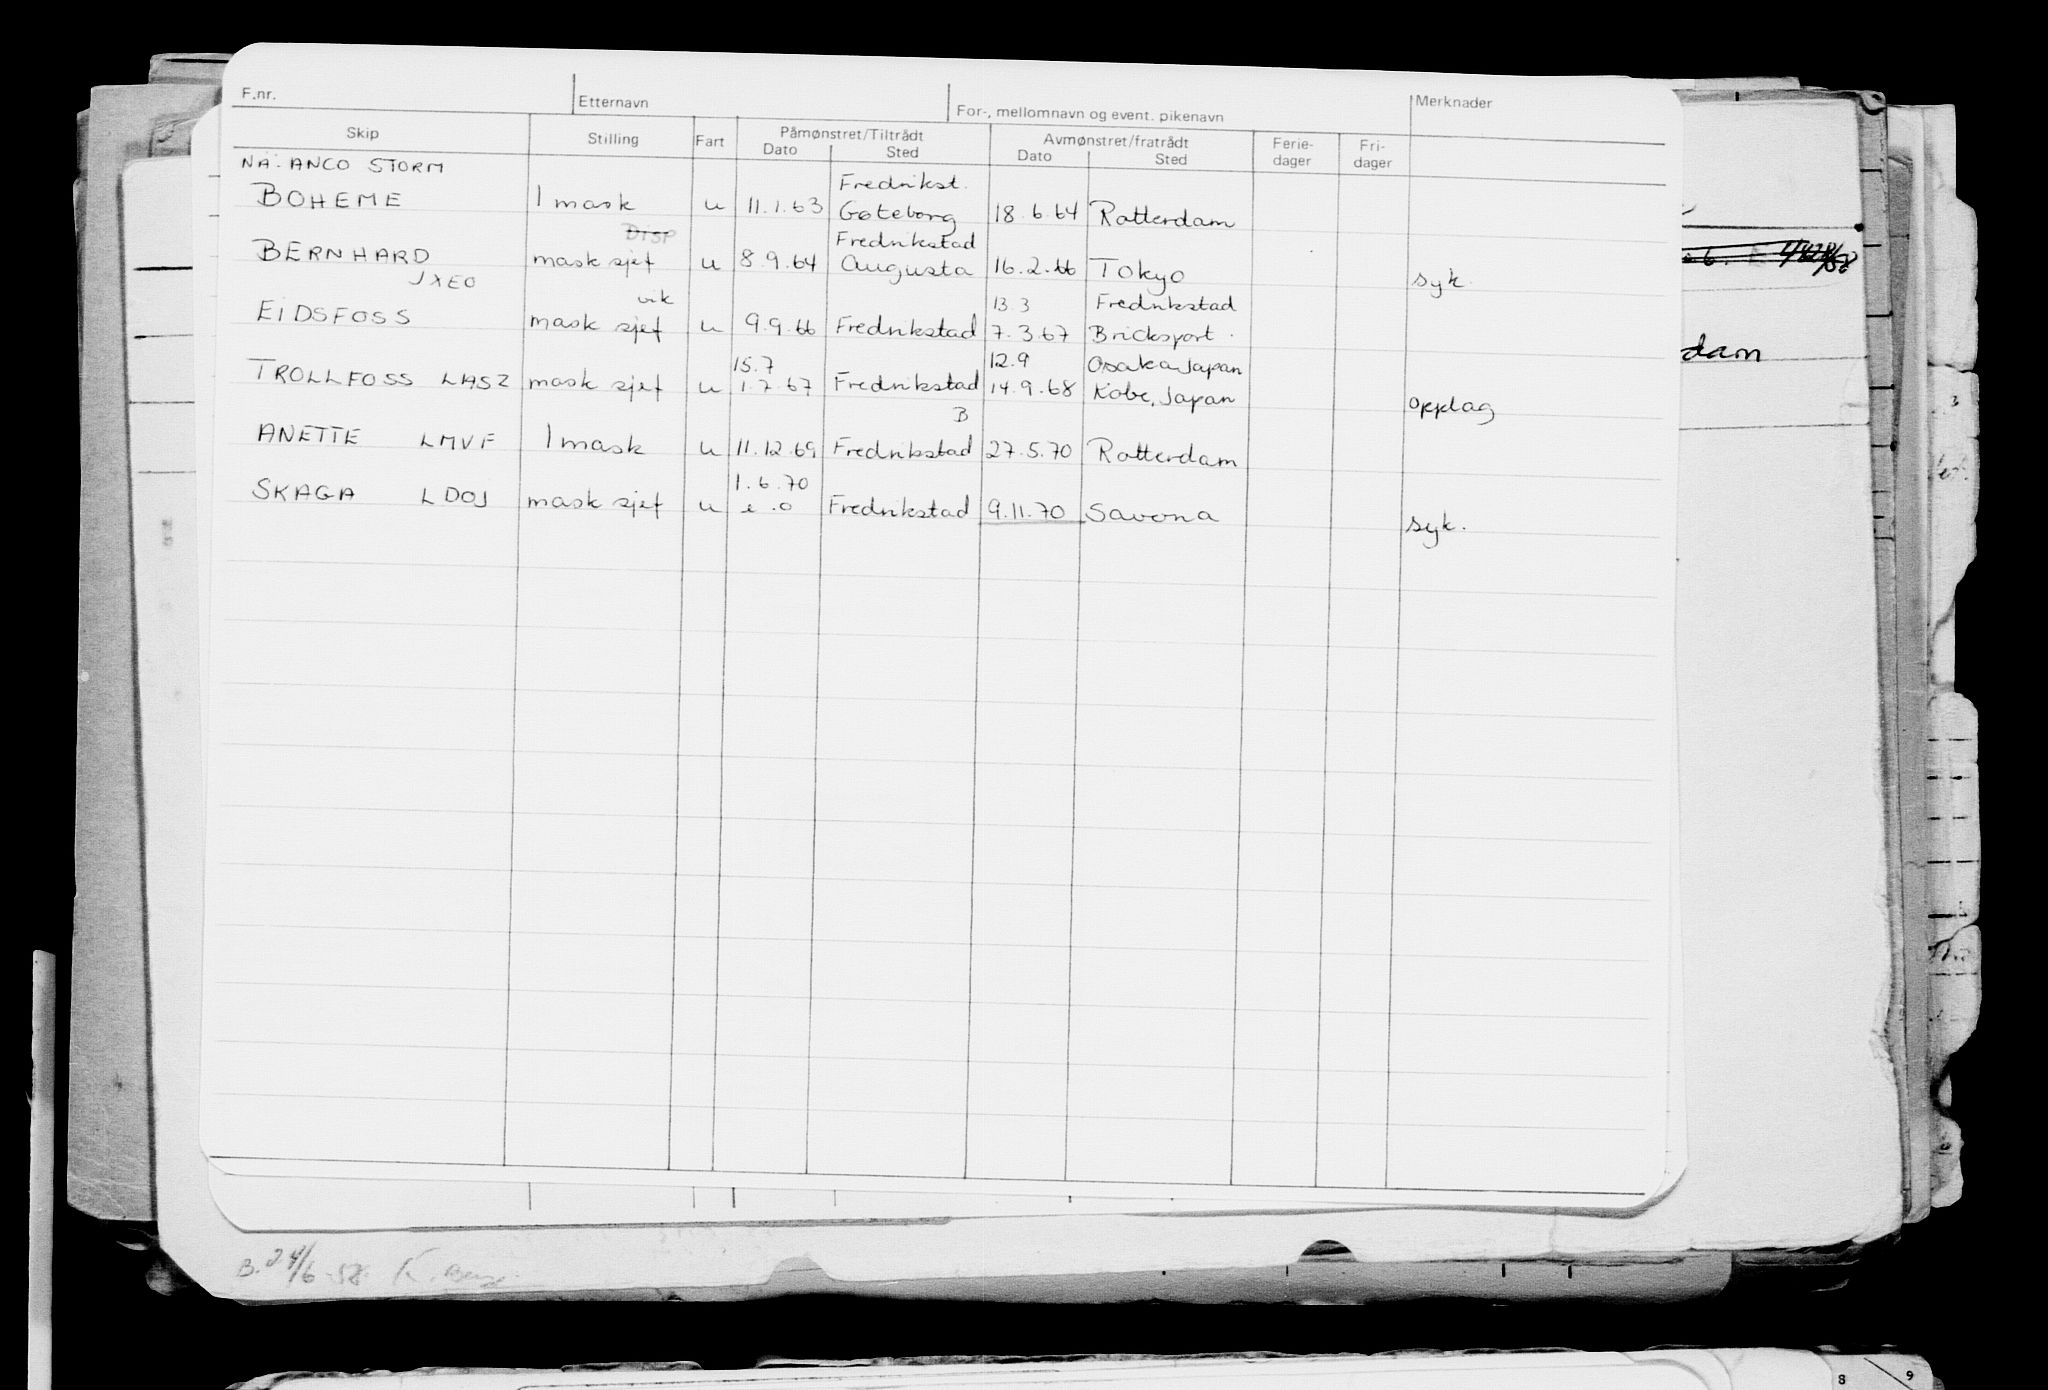 F.nr. Etternavn For-, mellomnavn og event. pikenavn Merknader
Skip Stilling Fart Påmønstret/Tiltrådt Avmønstret/fratrådt Ferie- Fri-
Dato Sted Dato Sted dager dager
NÅ: ANCO STORM Fredrikst.
BOHEME 1 mask u 11.1.63 Gøteborg 18.6.64 Rotterdam
DISP Fredrikstad
BERNHARD mask sjef u 8.9.64 Augusta 16.2.66 Tokyo syk.
JXEO
vik 13.3 Fredrikstad
EIDSFOSS mask sjef u 9.9.66 Fredrikstad 7.3.67 Bricksport.
15.7 12.9 Osaka Japan
TROLLFOSS LASZ mask sjef u 1.7.67 Fredrikstad 14.9.68 Kobe, Japan opplag
B
ANETTE LMVF 1 mask u 11.12.69 Fredrikstad 27.5.70 Rotterdam
1.6.70
SKAGA LDOJ mask sjef u e.o Fredrikstad 9.11.70 Savona syk.
dam
B. 24/6-58. K.
8 9